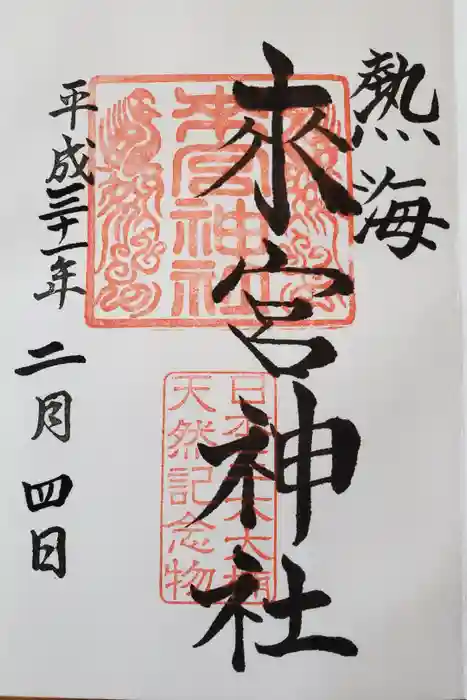 熱海
來宮神社
來宮神社
天然記念物
平成三十一年
二月四日